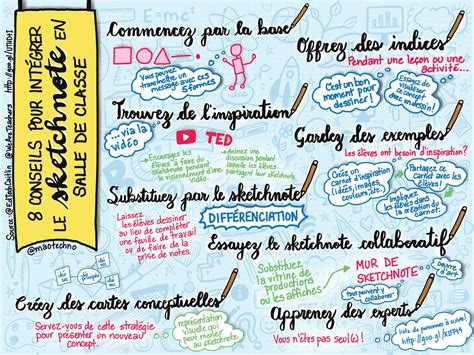 8 CONSEILS POUR INTÉGRER
LE sketchnote EN
SALLE DE CLASSE
Source: @EdTechCaitlin @WeAreTeachers
@maotechno
E=mc²
Commencez par la base
Vous pouvez
transmettre un
message avec ces
5 formes
Offrez des indices
Pendant une leçon ou une
activité...
C'est un bon
moment pour
dessiner!
Essayez de
visualiser
ce concept
avec un dessin!
Trouvez de l'inspiration
...via la
vidéo
TED
Encouragez les
élèves à faire du
sketchnote pendant
le visionnement d'une
vidéo.
Animez une
discussion pendant
laquelle les élèves
partagent et com-
parent leur sketchnote.
Gardez des exemples
Les élèves ont besoin d'inspiration?
Création d'un
coin inspiration
(idées, images,
couleurs,
etc.)
Partagez ce
coin avec les
élèves.
Impliquez les
élèves dans la
création du
coin.
Substituez par le sketchnote
Laissez
les élèves dessiner
au lieu de compléter
une feuille de travail
ou de faire de la
prise de notes.
DIFFÉRENCIATION
Essayez le sketchnote collaboratif
Substituez
la vitrine de
productions
ou les affiches
MUR DE
SKETCHNOTE
tous peuvent y
collaborer
oeuvre
d'art
Créez des cartes conceptuelles
Servez-vous de cette stratégie
pour présenter un nouveau
concept.
représentation
visuelle qui
peut mener
au sketchnote
Apprenez des experts
Vous n'êtes pas seul(e)!
Liste de personnes à suivre!